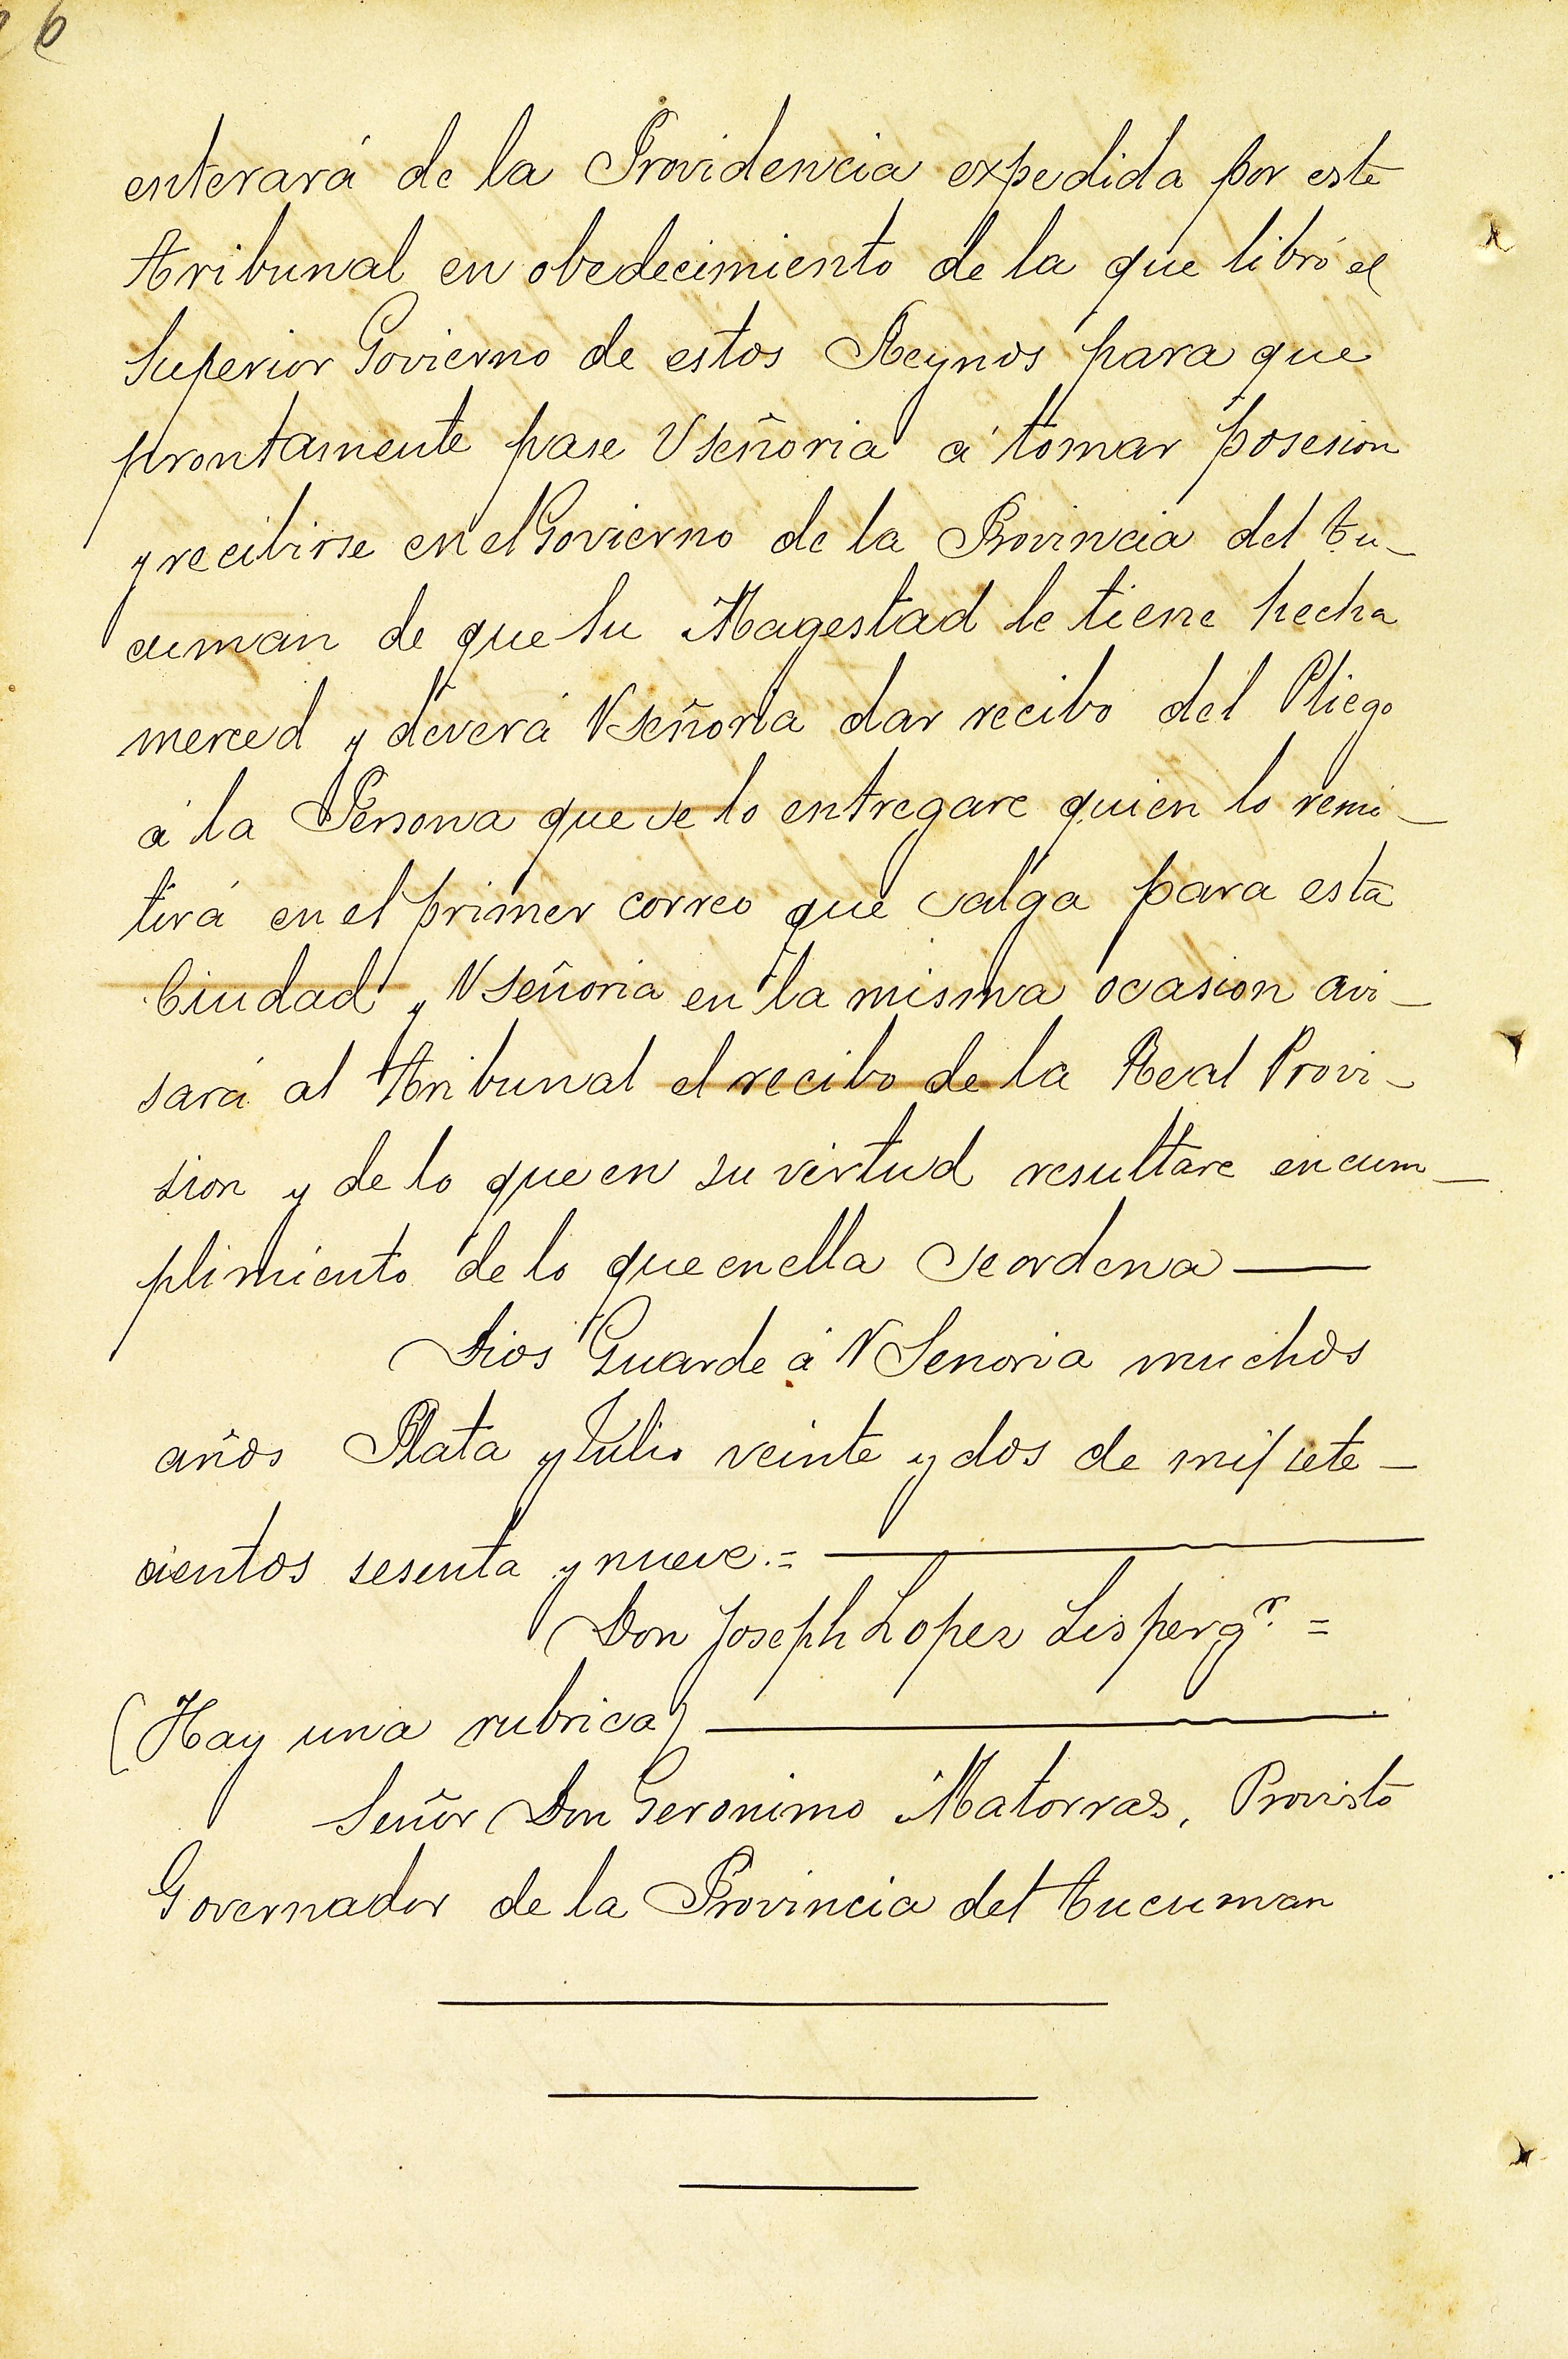 6
enterará de la Providencia expedida por este
tribunal en obedecimiento de la que libró el
Superior Govierno de estos Reynos para que
prontamente pase V señoria á tomar posesion
y recibirse en el Govierno de la Provincia del Tu_
cuman de que Su Magestad le tiene hecha
merced y deverá V señoria dar recibo del Pliego
á la Persona que se lo entregare quien lo remi_
tirá en el primer correo que salga para esta
Ciudad y V señoria en la misma ocasion avi_
sará al tribunal el recibo de la Real Provi_
sion y de lo que en su virtud resultare en cum_
plimiento de lo que en ella se ordena —
Dios Guarde á V Senoria muchos
años Plata y Julio veinte y dos de mil sete_
cientos sesenta y nueve.= —
Don Joseph Lopez Lisperg.r =
(Hay una rubrica) —
Señor Don Geronimo Matorras, Provisto
Governador de la Provincia del Tucuman